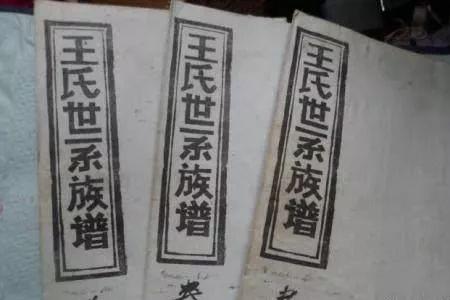 王氏世系族谱
王氏世系族谱
王氏世系族谱